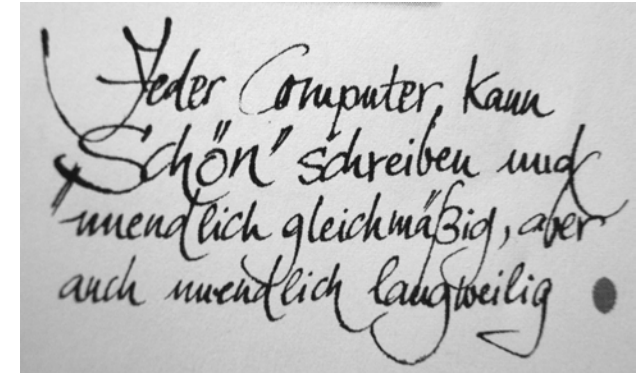 Jeder Computer, kann
„Schön" schreiben und
unendlich gleichmäßig, aber
auch unendlich langweilig